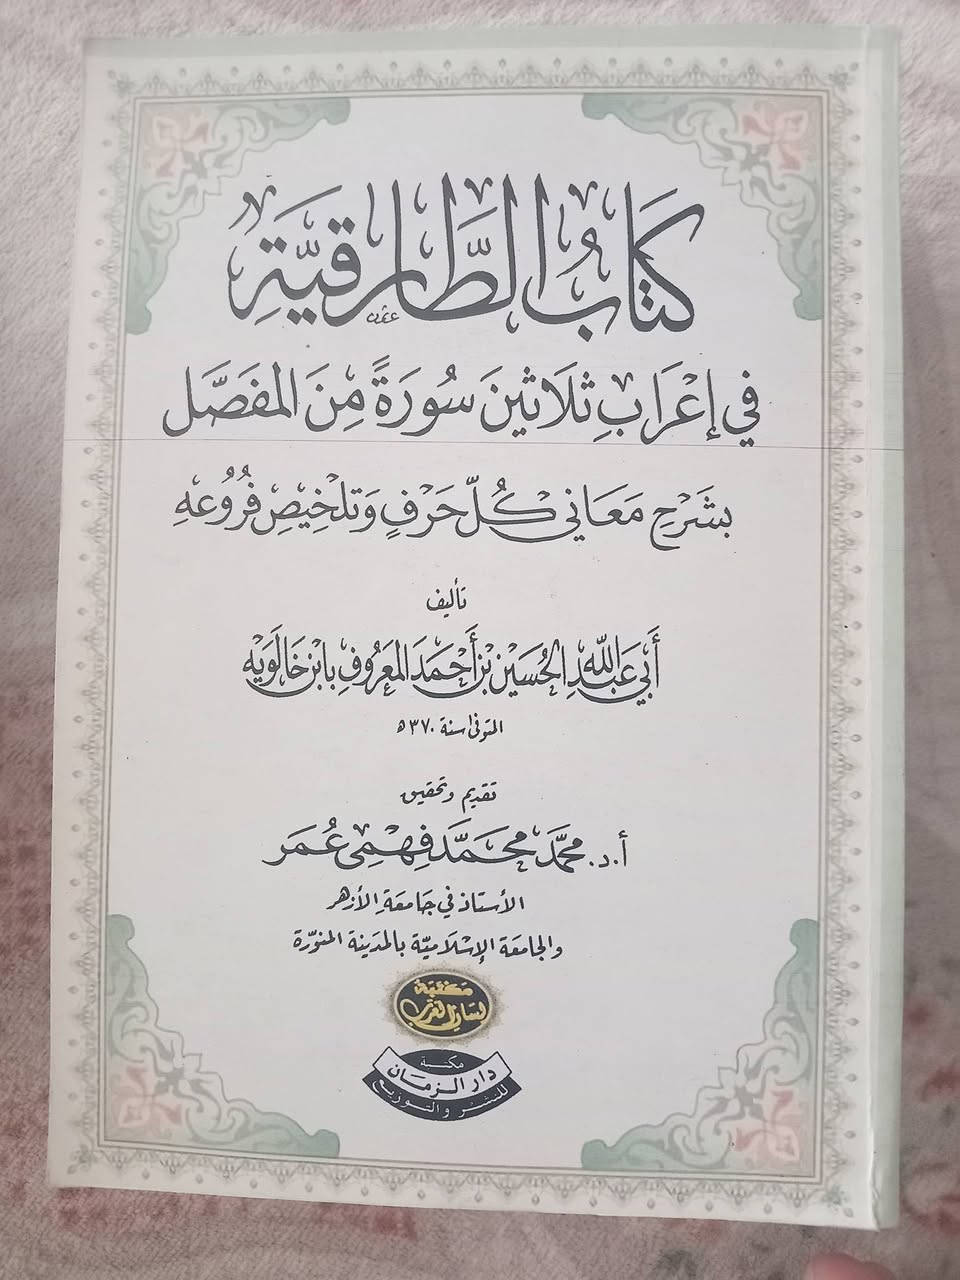 كِتَابُ الطَّارِقِيَّةِ
في إِعْرَابِ ثَلَاثِينَ سُورَةً مِنَ المُفَصَّل
بشَرْحِ مَعَاني كُلِّ حَرْفٍ وَتلْخِيصِ فُرُوعِهِ
تأليف
أَبي عَبدِاللهِ الحُسَيْن بْنِ أَحْمَدَ المَعْرُوفِ بابْن خَالَوَيْه
المتوفى سنة ٣٧٠ھ
تقديم وتحقيق
أ.د. محمَّد محمَّد فهْمِي عُمَر
الأستاذ في جَامعَةِ الأزهر
والجامعَة الإسْلاميّة بالمدينة المنوّرة
مكتبة
لسان العرب
مكتبة
دار الزمان
للنشر والتوزيع